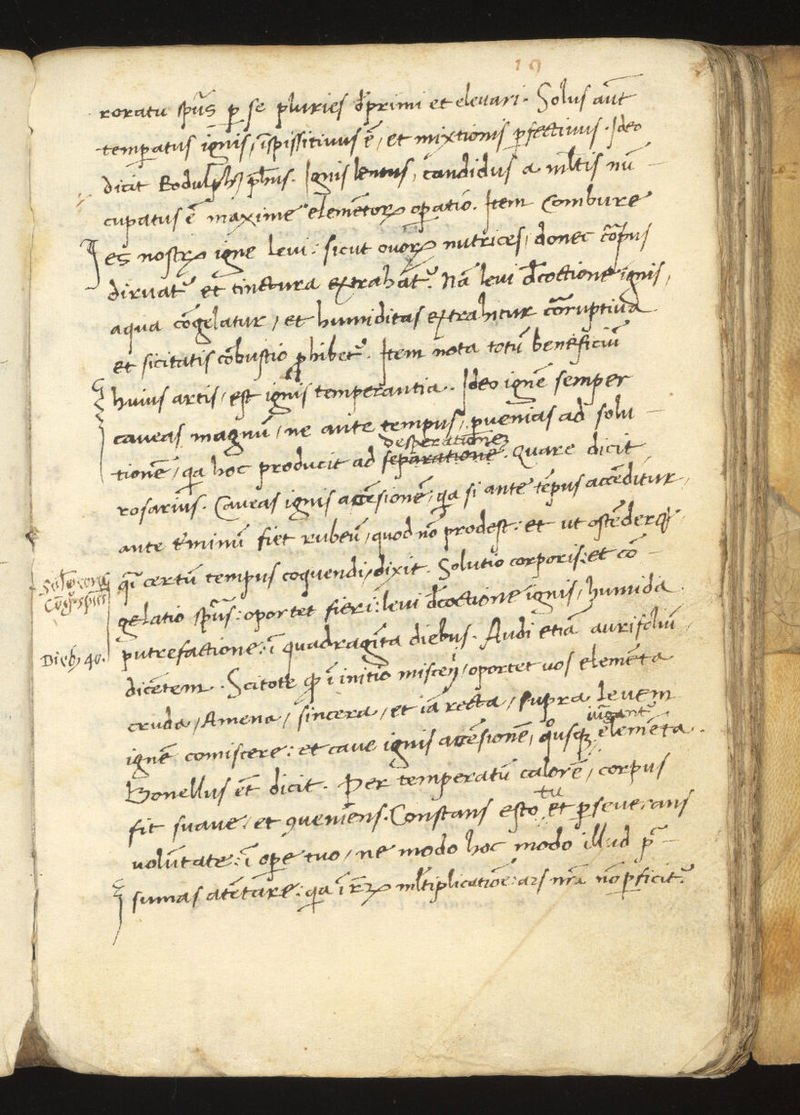 19
roratu sp̄us p̱ se pluries dp̄rimi et eleuari. Solus aūt
temperatus ignis, īspissitiuus ē, et mixtionis p̱fectiuus. Ideo
dicit Rodulph9 ph̄us. Ignis lentus, candidus a ml̄tis nun-
cupatus ē maxime elemētorꝝ op̱atio. Item Combure
es nostrꝝ igne leui: sicut ouorꝝ nutrices, donec corpus
diruat᷑ et tinctura extrahāt᷑. Nā leui dc̄octione ignis,
aqua cōgelatur, et humiditas extrahitur corruptiua
et sicitatis cōbustio ꝓhibet᷑. Item nota totū beneficiū
huius artis, est ignis temperantia. Ideo ignē semper
caueas magnū, ne ante tempus, ꝑuenias ad solu-
tionē, qa hoc producit ad separatione desperationē. Quare dicit
rosarius. Caueas ignis accēsionē, qa si ante tēpus accēditur,
ante tērminū fiet rubeū, quod nō prodest: et ut ostēderet
qd certū tempus coquendi, dixit. Solutio corporis: et cō-
gelatio sp̄us: oportet fieri: leui dc̄octione ignis, humida
putrefactione: ī quadragīta diebus.
Dieb9 40.
Audi etiā aurifoliū
dicētem. Scitote qd ī initio misceri, oportet uos elemēta
cruda, Amena, sincera, et iā recta, supra leuem
ignē comiscere: et caue ignis accēsionē, quousqꝫ iūgant᷑ elemēta.
Bonellus ēt dicit. Per temperatū calorē, corpus
fit suaue, et ꝯueniens. Constans esto tu et p̱seuerans
uolūtate: ī op̱e tuo, ne modo hoc modo illud p̄-
sumas atētare: qa ī rerꝝ ml̄tiplicatiōe: ars nr̄a nō p̱ficit᷑.